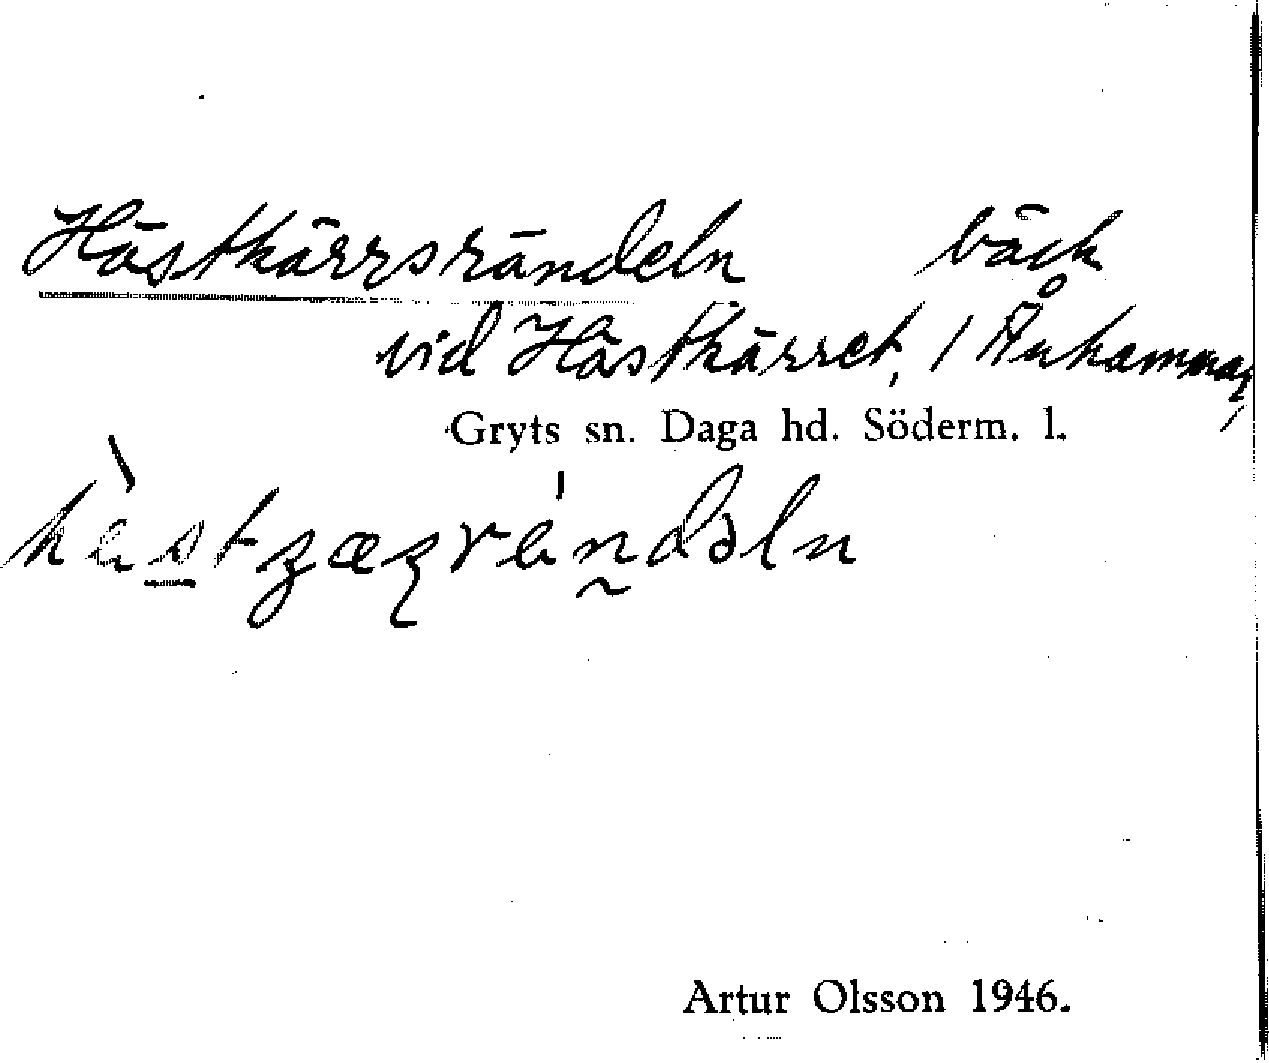 Hästkärrsrändeln bäck
vid Hästkärret, / Ånhammar,
Gryts sn. Daga hd. Söderm. l.
Artur Olsson 1946.